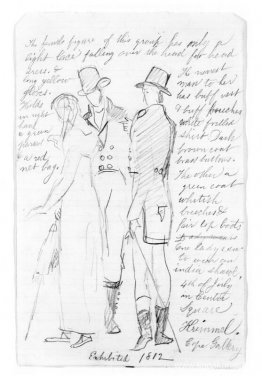 The female figure of this group has only a
light lace falling over the head for head
dress &
long yellow
gloves.
Holds
in right
hand
a green
parasol
& a red
net bag.
The nearest
man to her
has buff vest
& buff breeches
white frilled
shirt Dark
brown coat
brass buttons.
The other a
green coat
whitish
breeches &
fair top boots
is
One lady seen
to wear an
india shawl
4th of July
in Centre
Square
Krimmel.
Expo Gallery
Exhibited 1812